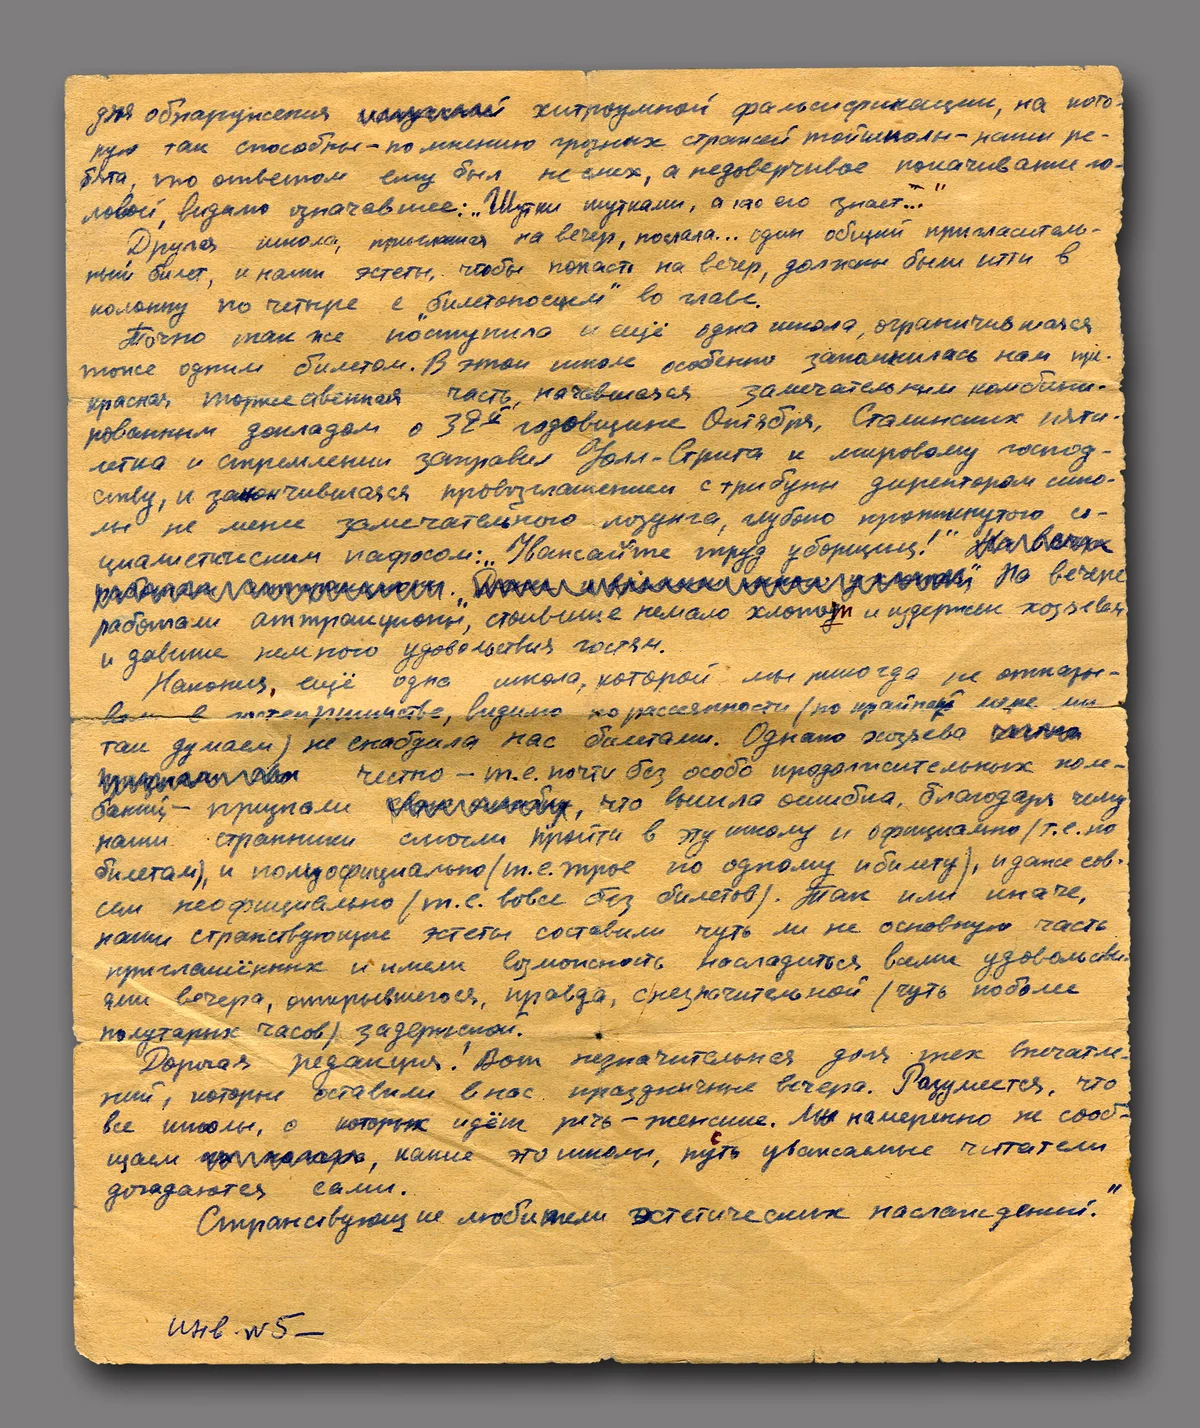 для обнаружения хитроумной фальсификации, на кото-
рую так способны - по мнению грозных стражей той школы - наши ре-
бята, что ответом ему был не смех, а недоверчивое покачивание го-
ловой, видимо означавшее: „Шутки шутками, а кто его знает..."
Другая школа, приглашая на вечер, послала... один общий пригласитель-
ный билет, и наши эстеты, чтобы попасть на вечер, должны были идти в
колонну по четыре с „билетоносцем" во главе.
Точно так же поступила и ещё одна школа, ограничившаяся
тоже одним билетом. В этой школе особенно запомнилась нам пре-
красная торжественная часть, начавшаяся замечательным комбини-
рованным докладом о 32ой годовщине Октября, Сталинских пяти-
летка и стремлении заправил Уолл-Стрита к мировому господ-
ству, и закончившаяся провозглашением с трибуны директором шко-
лы не менее замечательного лозунга, глубоко проникнутого со-
циалистическим пафосом: „Уважайте труд уборщиц!" На вечере
работали аттракционы. На вечере
работали „аттракционы", стоившие немало хлопот и издержек хозяевам
и давшие немного удовольствия гостям.
Наконец, ещё одна школа, которой мы никогда не отказы-
вали в гостеприимстве, видимо по рассеянности (по крайней мере мы
так думаем) не снабдила нас билетами. Однако хозяева
честно - т.е. почти без особо продолжительных коле-
баний - признали свою ошибку, что вышла ошибка, благодаря чему
наши странники смогли пройти в эту школу и официально (т.е. по
билетам), и полуофициально (т.е. трое по одному билету), и даже сов-
сем неофициально (т.е. вовсе без билетов). Так или иначе,
наши странствующие эстеты составили чуть ли не основную часть
приглашённых и имели возможность насладиться всеми удовольстви-
ями вечера, открывшегося, правда, с незначительной (чуть поболее
полутарых часов) задержкой.
Дорогая редакция! Вот незначительная доля тех впечатле-
ний, которые оставили в нас праздничные вечера. Разумеется, что
все школы, о которых идёт речь - женские. Мы намеренно не сооб-
щаем, какие это школы, пусть уважаемые читатели
догадаются сами.
Странствующие любители эстетических наслаждений."
инв. N 5 -